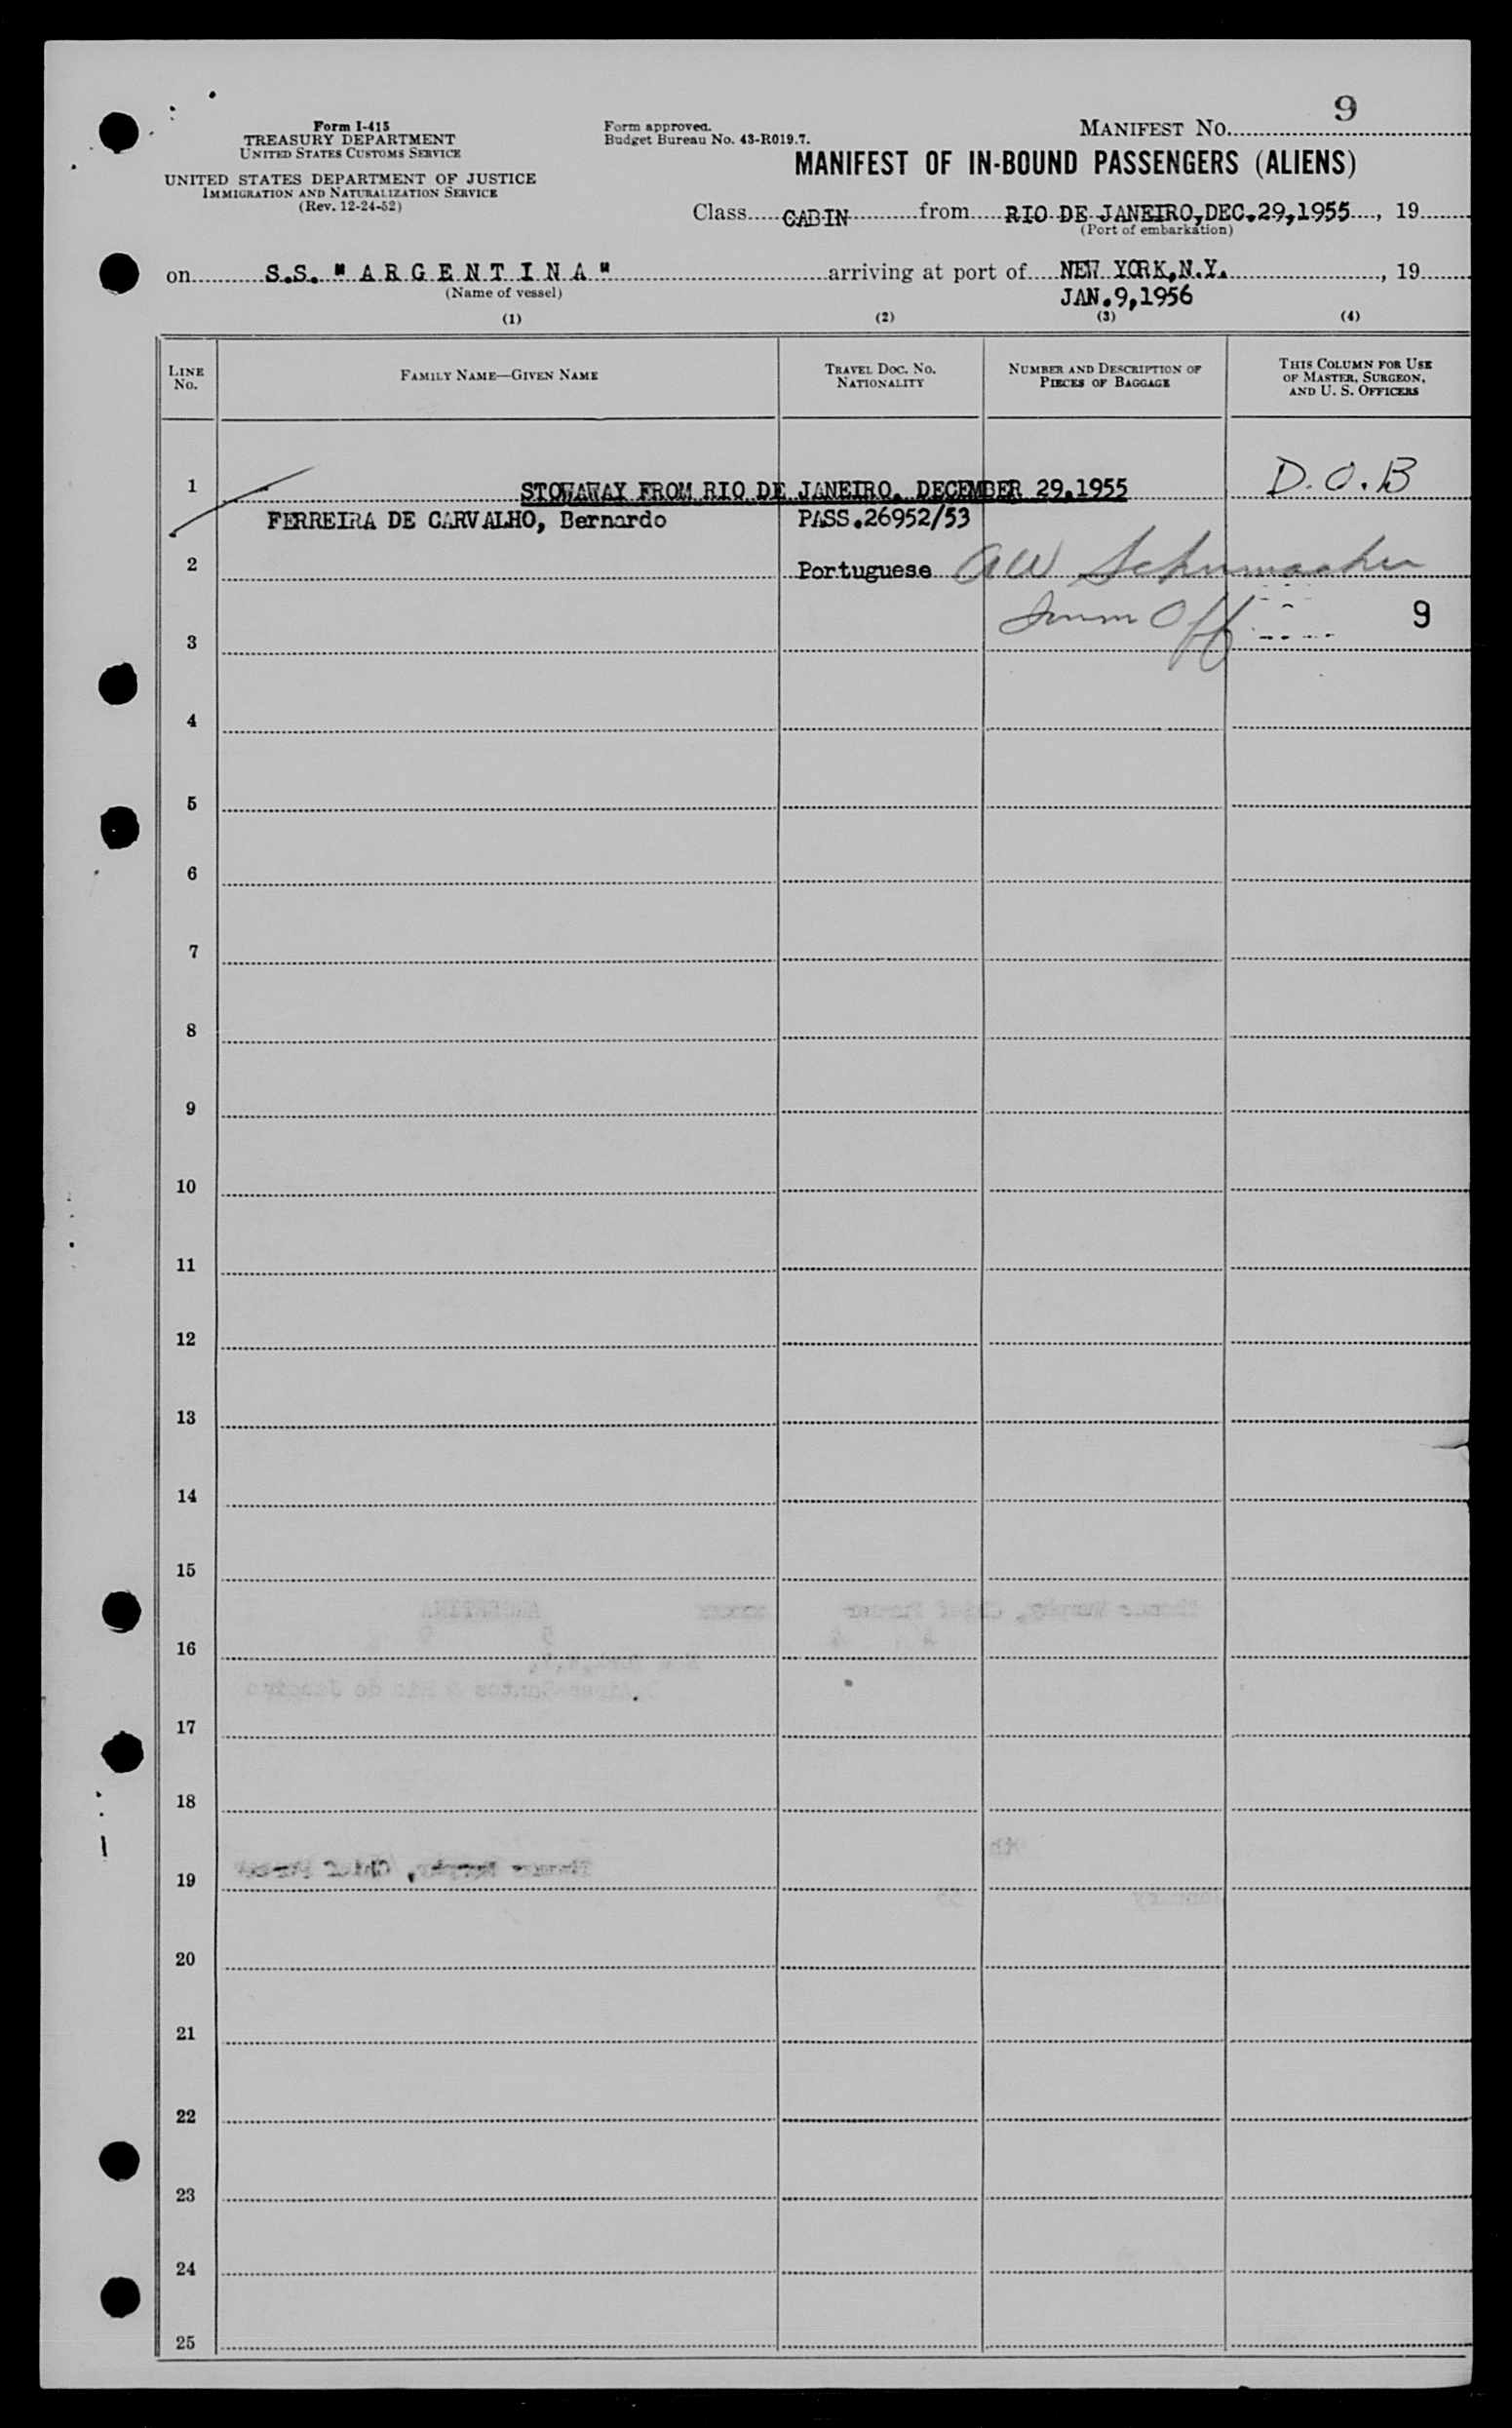 9
Form I-415
TREASURY DEPARTMENT
UNITED STATES CUSTOMS SERVICE
UNITED STATES DEPARTMENT OF JUSTICE
IMMIGRATION AND NATURALIZATION SERVICE
(Rev. 12-24-52)
Form approved.
Budget Bureau No. 43-R019.7.
MANIFEST NO.
MANIFEST OF IN-BOUND PASSENGERS (ALIENS)
Class CABIN from RIO DE JANEIRO, DEC.29,1955, 19
(Port of embarkation)
on S.S. "ARGENTINA" arriving at port of NEW YORK, N.Y., 19
(Name of vessel) JAN.9,1956
(1) (2) (3) (4)
LINE No. FAMILY NAME—GIVEN NAME TRAVEL DOC. NO. NATIONALITY NUMBER AND DESCRIPTION OF PIECES OF BAGGAGE THIS COLUMN FOR USE OF MASTER, SURGEON, AND U. S. OFFICERS
1 STOWAWAY FROM RIO DE JANEIRO. DECEMBER 29,1955 D.O.B
FERREIRA DE CARVALHO, Bernardo PASS.26952/53
2 Portuguese AW Schumacher
Imm Off 9
3
4
5
6
7
8
9
10
11
12
13
14
15
16
17
18
19
20
21
22
23
24
25